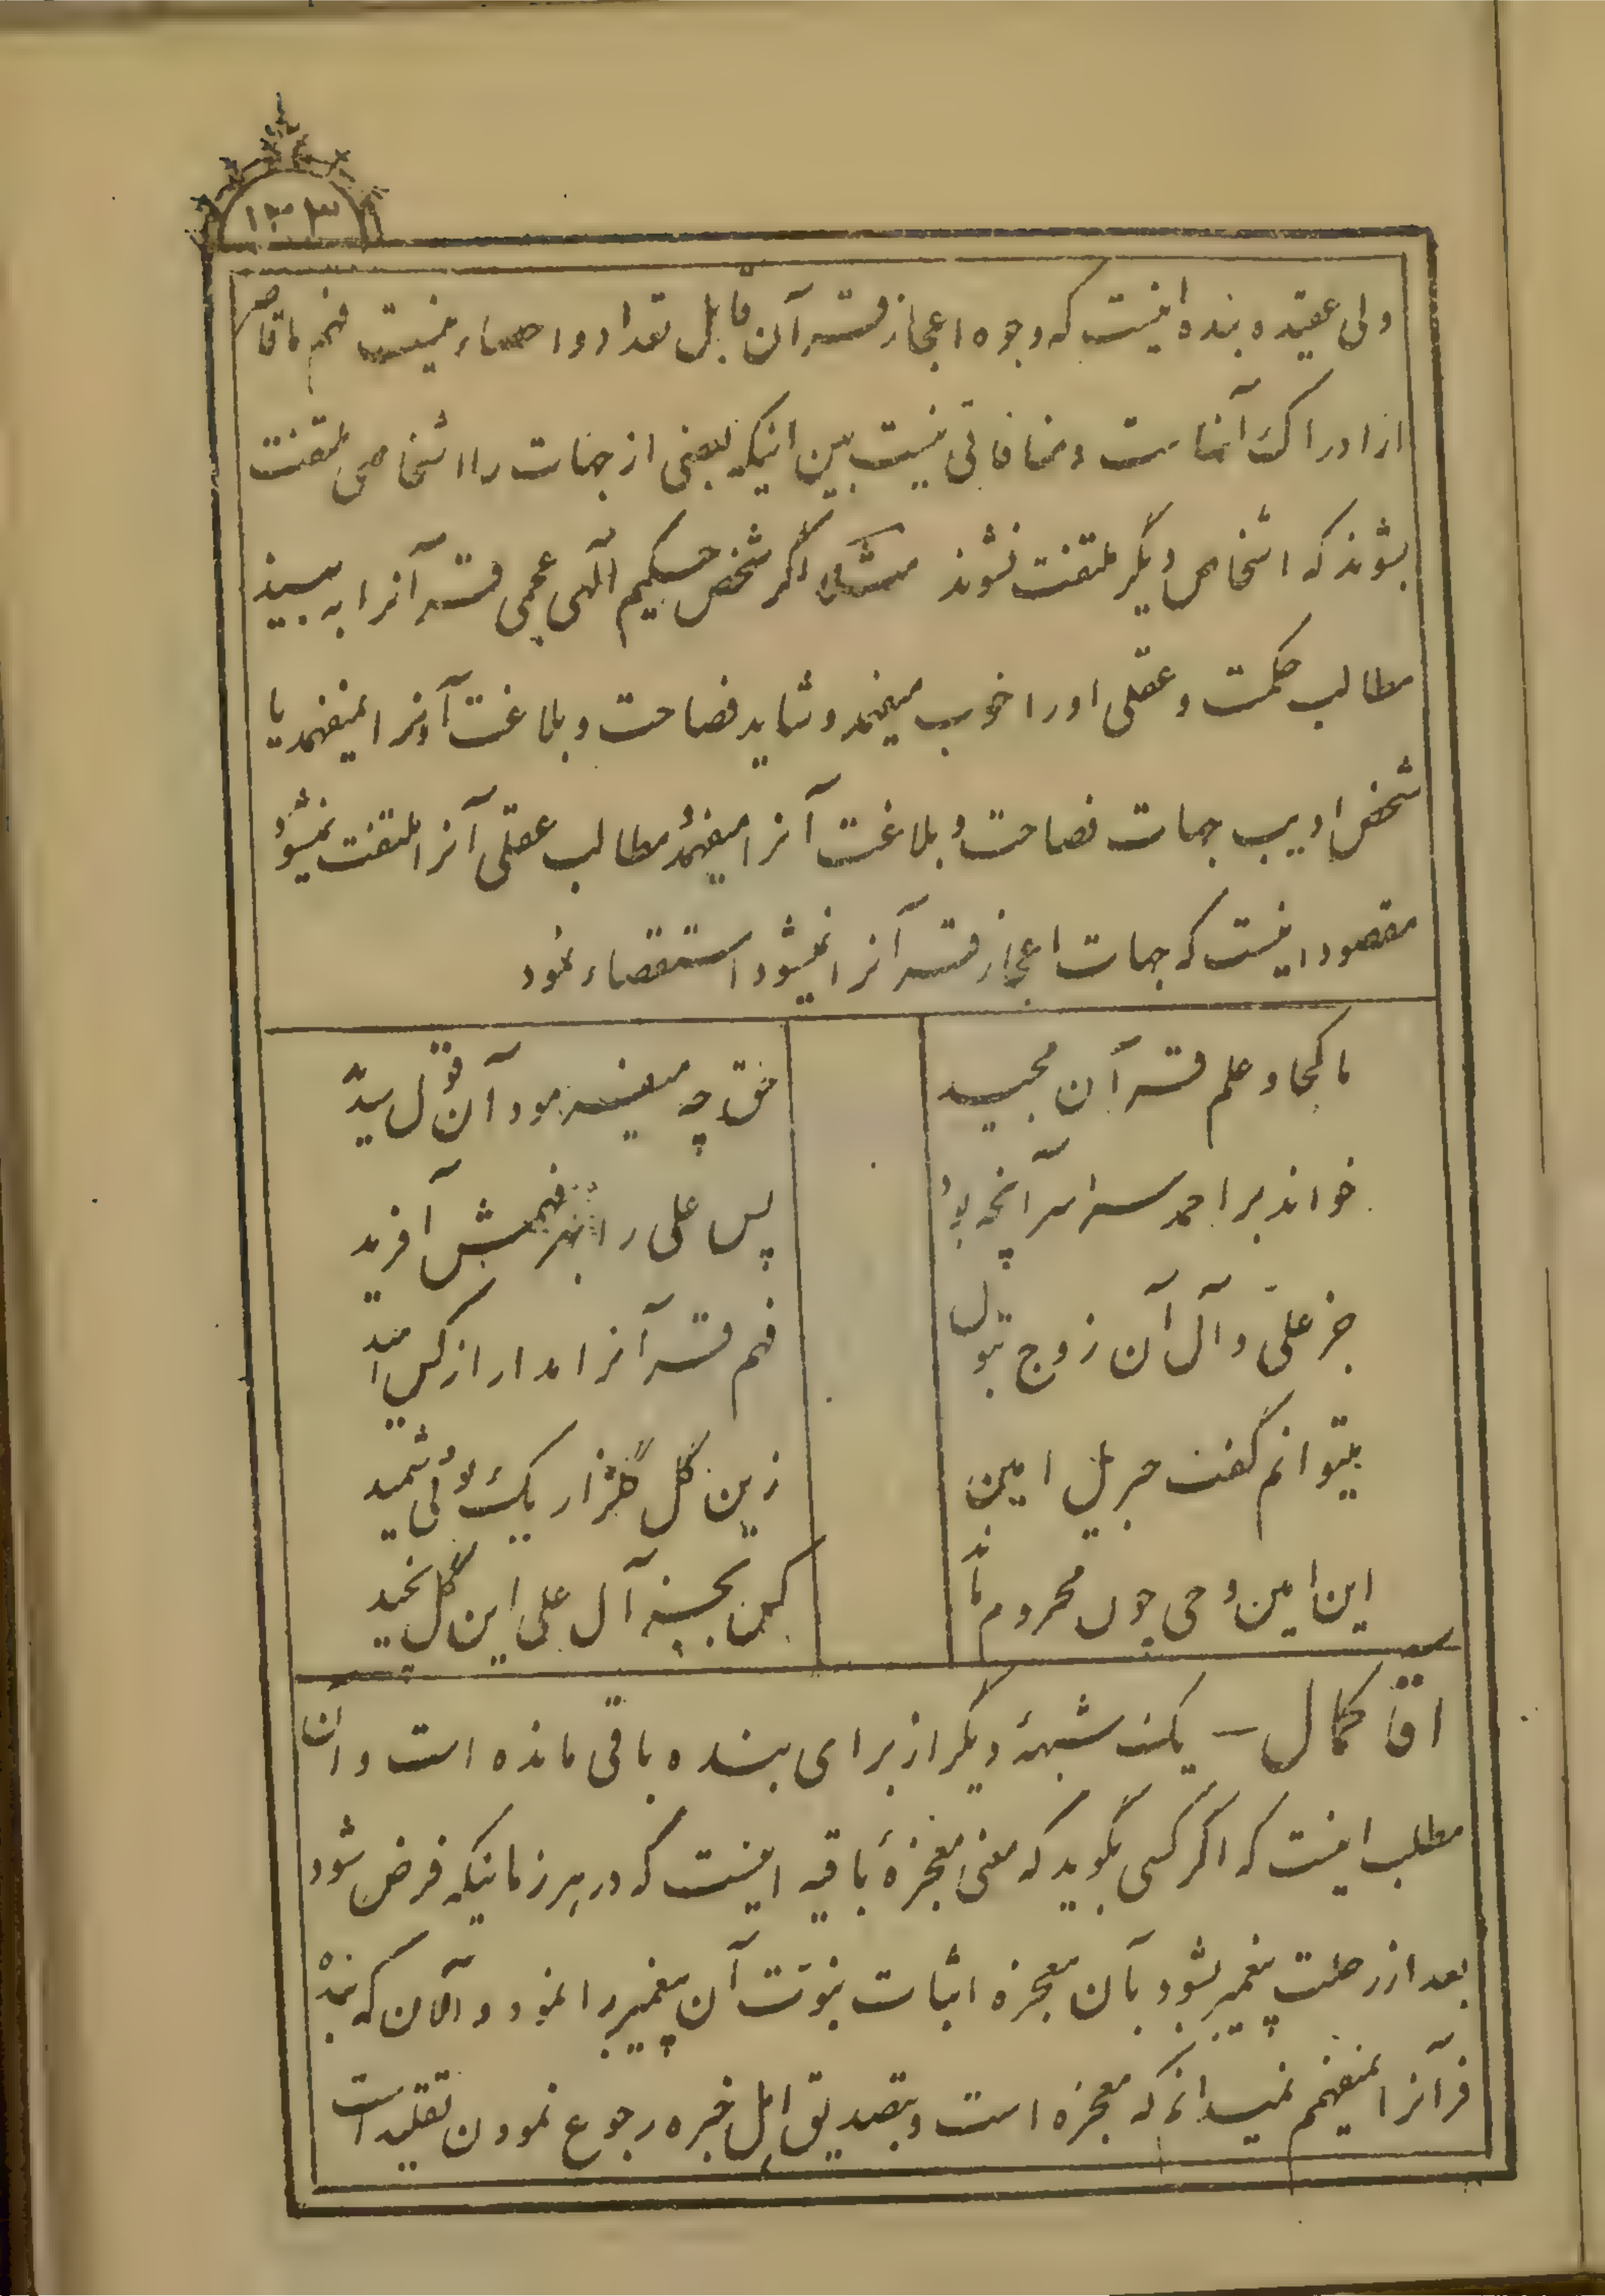 ۱۳۳
ولی عقیده بنده اینست که وجوه اعجاز قرآن قابل تعداد و احصاء نیست فهم ما قاصر
از ادراک آنهاست و منافاتی نیست بین اینکه بعضی از جهات را اشخاصی ملتفت
بشوند که اشخاص دیگر ملتفت نشوند مثلا اگر شخص حکیم الهی عجمی قرآنرا به بیند
مطالب حکمت و عقلی او را خوب میفهمد و شاید فصاحت و بلاغت آنرا نمیفهمد یا
شخص ادیب جهات فصاحت و بلاغت آنرا میفهمد و مطالب عقلی آنرا ملتفت نمیشود
مقصود اینست که جهات اعجاز قرآنرا نمیشود استقصاء نمود
ما کجا و علم قرآن مجید حق چه میفرمود آن قول سدید
خواند بر احمد سراسر آنچه بود پس علی را بهر فهمش آفرید
جز علی و آل آن زوج بتول فهم قرآنرا مدار از کس امید
میتوانم گفت جبریل امین زین گل گلزار یک بوئی شمید
این امین وحی چون محروم ماند کس بجز آل علی این گل نچید
آقا کمال – یک شبههٔ دیگر از برای بنده باقی مانده است و آن
مطلب اینست که اگر کسی بگوید که معنی معجزهٔ باقیه اینست که در هر زمانیکه فرض شود
بعد از رحلت پیغمبر بشود بآن معجزه اثبات نبوت آن پیغمبر را نمود و الآن که بنده
قرآنرا نمیفهمم نمیدانم که معجزه است و بتصدیق اهل خبره رجوع نمودن تقلید است